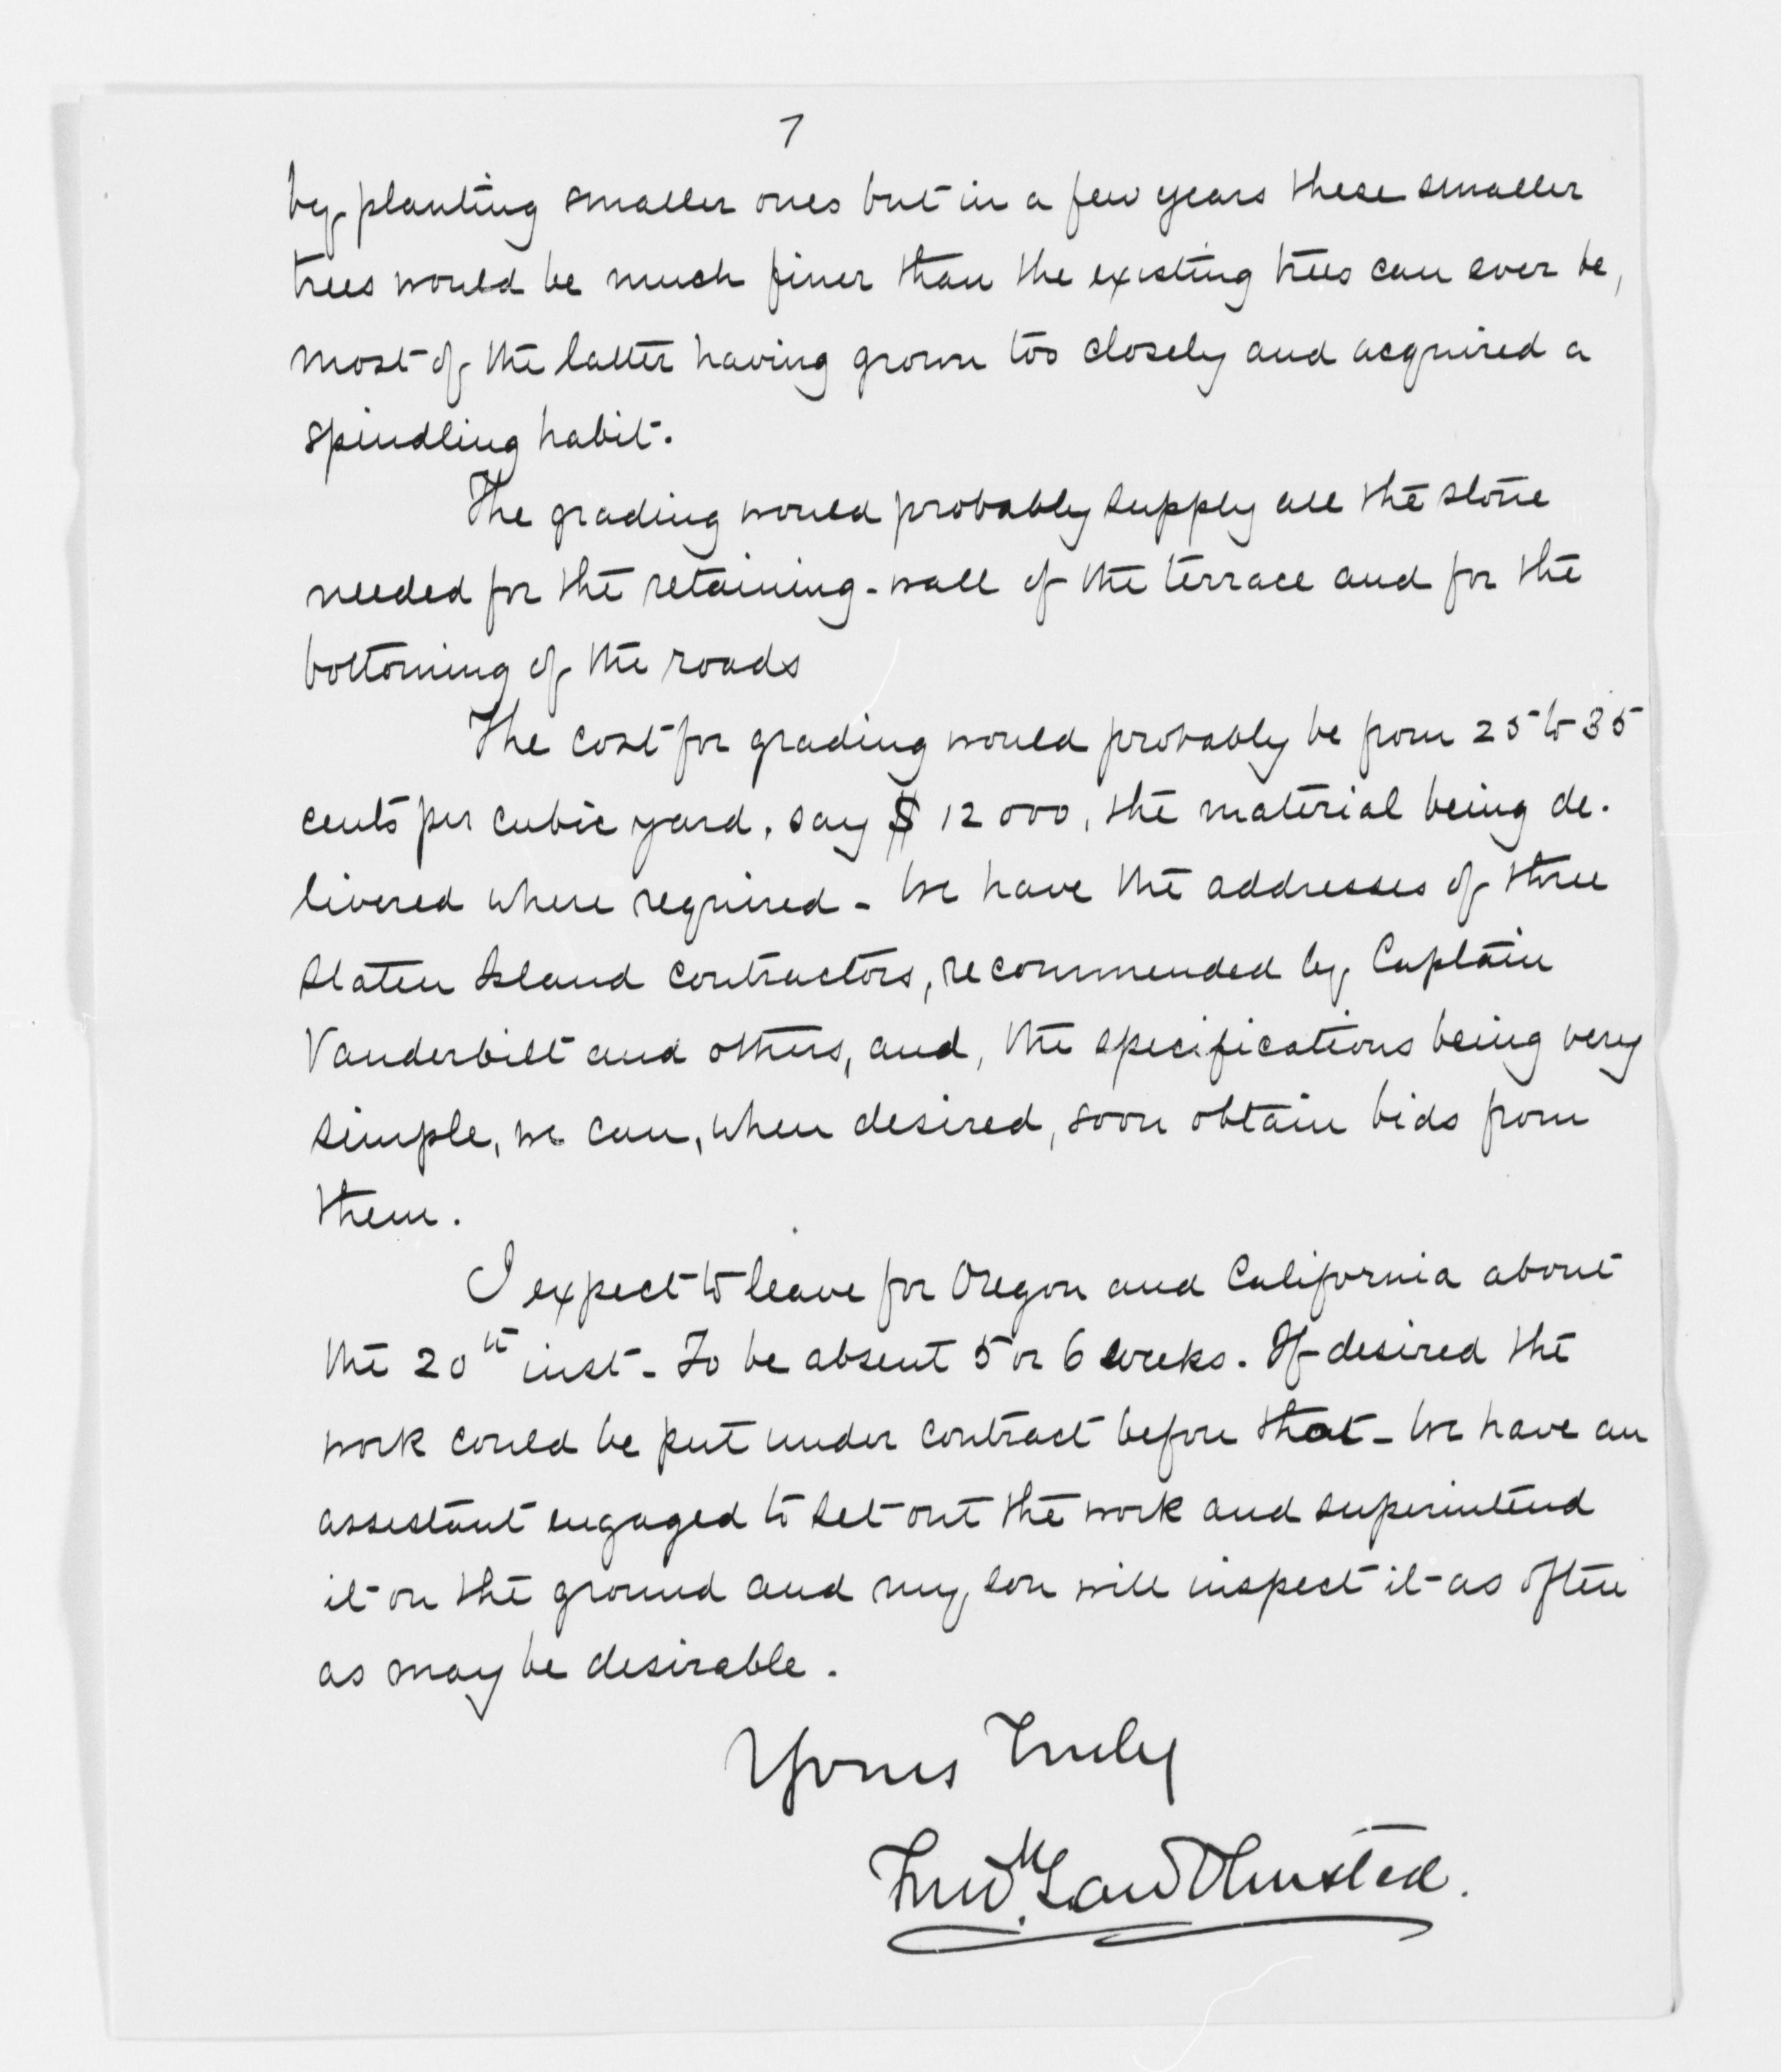 7
by planting smaller ones but in a few years these smaller
trees would be much finer than the existing trees can ever be,
most of the latter having grown too closely and acquired a
spindling habit.
The grading would probably supply all the stone
needed for the retaining-wall of the terrace and for the
bottoming of the roads
The cost for grading would probably be from 25 to 35
cents per cubic yard, say $12000, the material being de-
livered where required - We have the addresses of three
Staten Island contractors, recommended by Captain
Vanderbilt and others, and, the specifications being very
simple, we can, when desired, soon obtain bids from
them.
I expect to leave for Oregon and California about
the 20th inst - To be absent 5 or 6 weeks. If desired the
work could be put under contract before that - We have an
assistant engaged to set out the work and superintend
it on the ground and my son will inspect it as often
as may be desirable.
Yours Truly
Fredk. Law Olmsted.